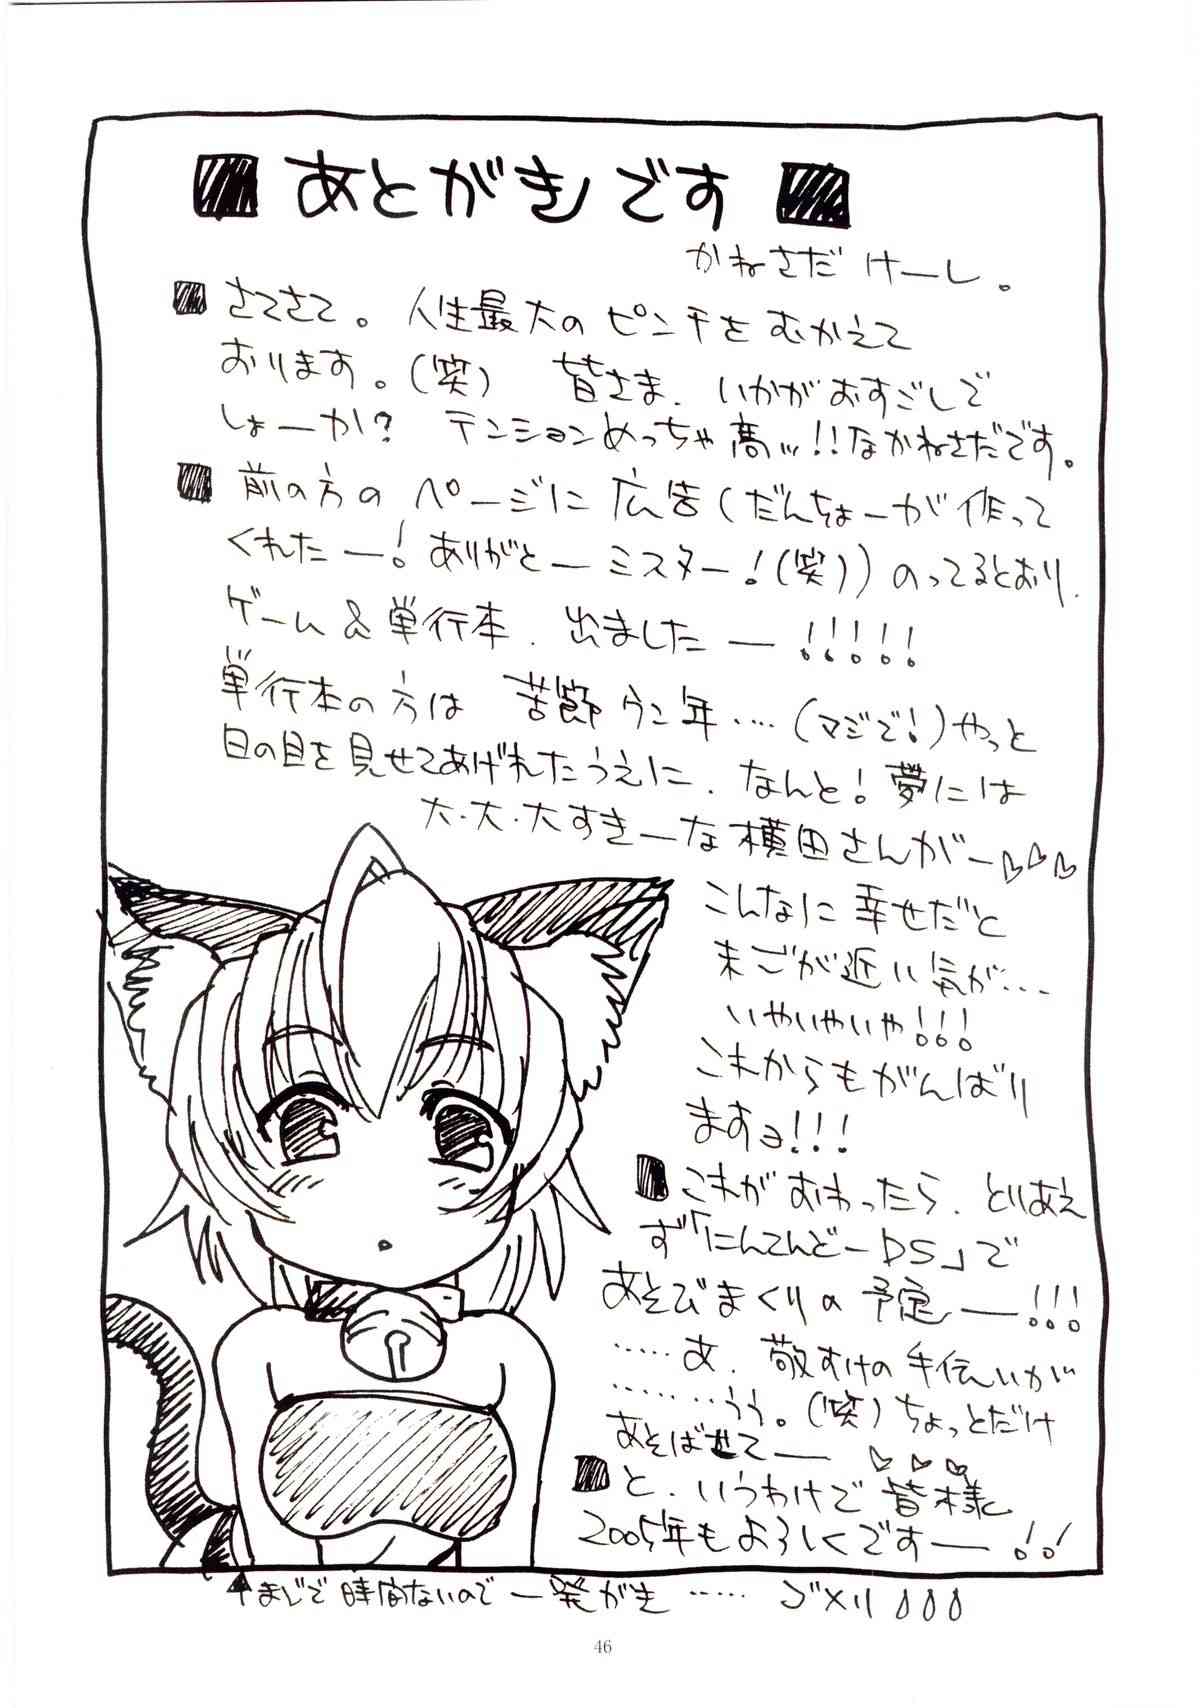 ■あとがきです■
かねさだけーし。
■さてさて。人生最大のピンチをむかえて
おります。(笑) 皆さま、いかがおすごしで
しょーか? テンションめっちゃ高ッ!!なかねさだです。
■前の方のページに広告(だんちょーが作って
くれたー!ありがとーミスター!(笑))のってるとおり、
ゲーム&単行本、出ましたー!!!!!
単行本の方は苦節ウン年‥‥(マジで!)やっと
日の目を見せてあげれたうえに、なんと!夢には
大・大・大すきーな横田さんがー♡♡♡
こんなに幸せだと
末ごが近い気が…
いやいやいや!!!
これからもがんばり
ますョ!!!
■これがおわったら、とりあえ
ず「にんてんどーDS」で
あそびまくりの予定ー!!!
‥‥‥あ、敬すけの手伝いが
‥‥‥‥うう。(笑)ちょっとだけ
あそばせてー♡♡♡
■と、いうわけで皆様
2005年もよろしくですー!!
↑まじで時間ないので一発がき‥‥‥ゴメリ
46